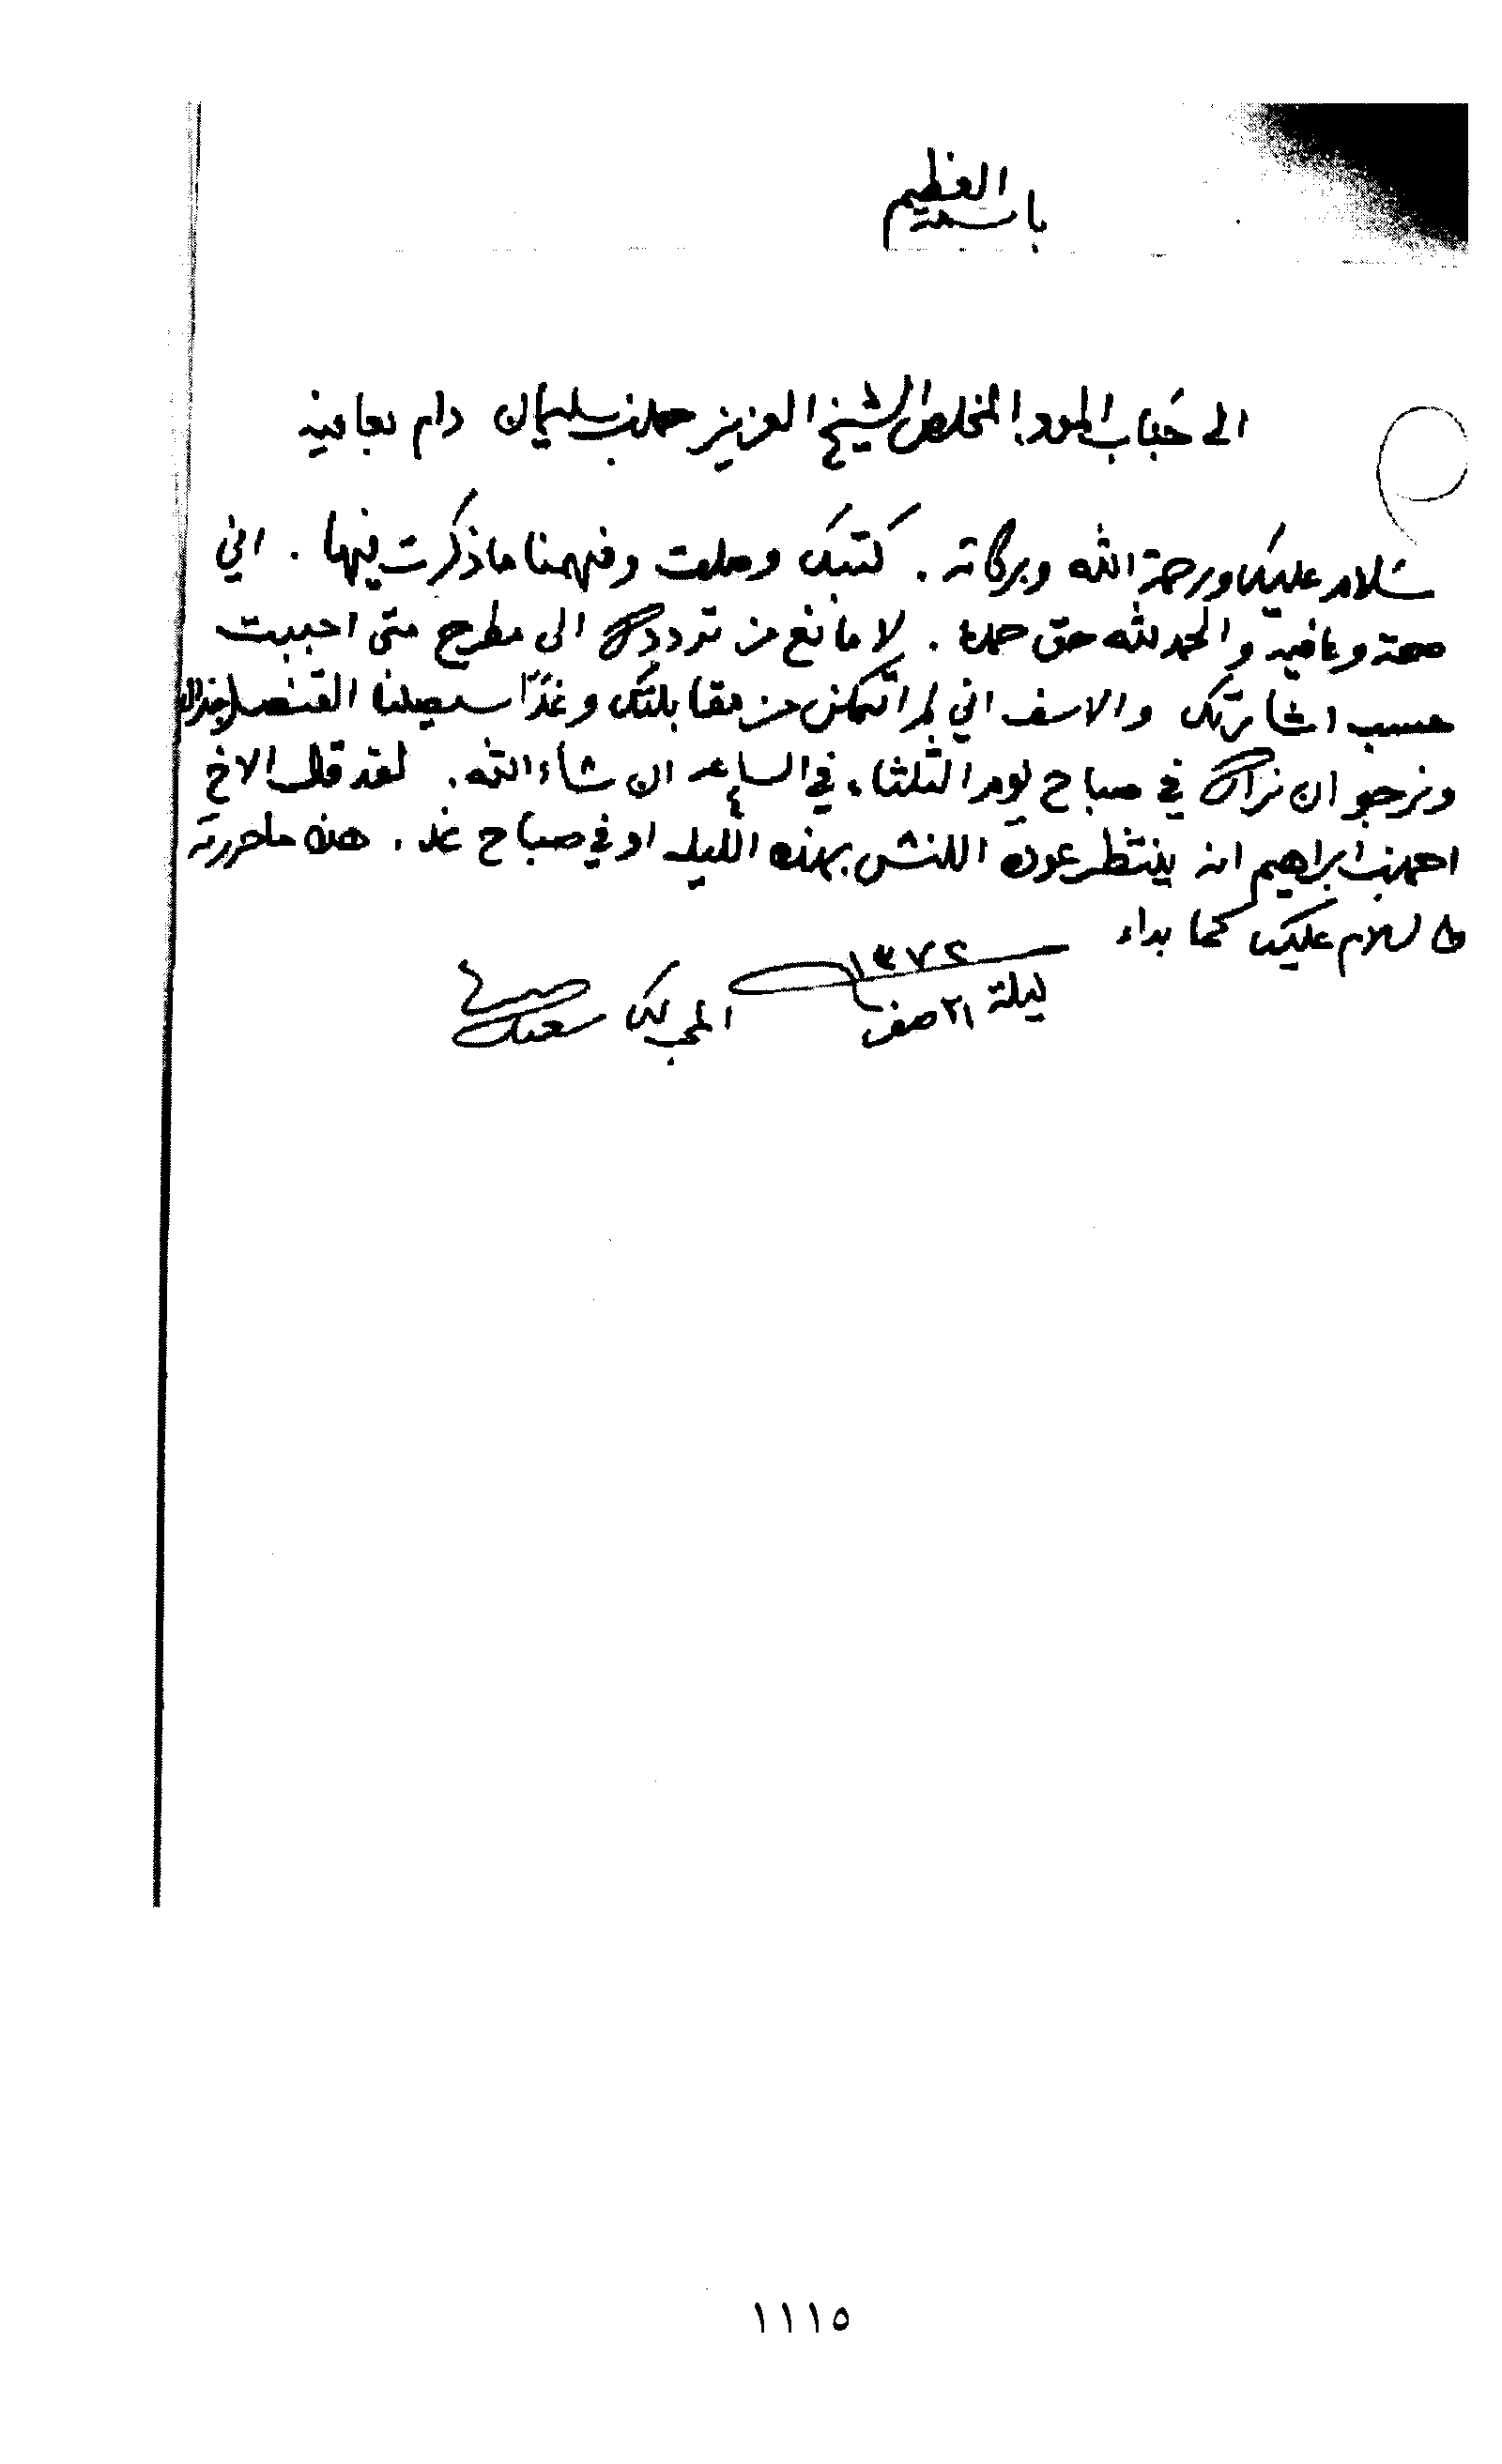 باسمه العظيم
الى جناب المودة المخلص الشيخ العزيز حمد بن سليمان دام بعافيه
سلام عليك ورحمة الله وبركاته . كتبك وصلت وفهمنا ما ذكرت فيها . اني
بصحة وعافيه والحمد لله حق حمده . لا مانع من ترددك الى مطرح متى احببت
حسب اشارتك والاسف اني لم اتمكن من مقابلتك وغدًا سيصلنا القنصل
ونرجو ان نراك في صباح يوم الثلثاء في الساعه ٤ ان شاء الله . لقد قال الاخ
احمد بن ابراهيم انه ينتظر عودة اللنش بهذه الليله او في صباح غد . هذه ما حررته
والسلام عليك كما بداء
ليلة ٢١ صفر ١٣٧٢
المحب لك
سعيد
١١١٥